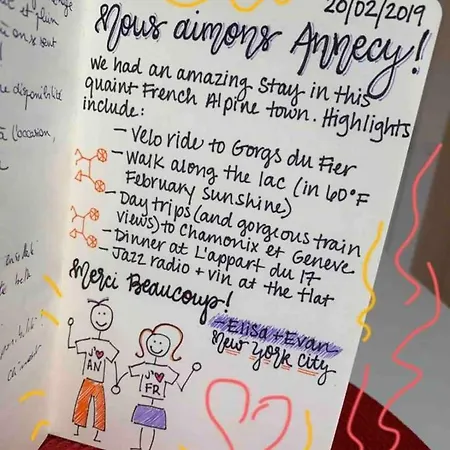 20/02/2019
Nous aimons Annecy!
We had an amazing stay in this
quaint French Alpine town. Highlights
include:
- Velo ride to Gorgs du Fier
- Walk along the lac (in 60°F
February sunshine)
- Day trips (and gorgeous train
views) to Chamonix et Geneve
- Dinner at L'appart du 17
- Jazz radio + vin at the flat
Merci Beaucoup!
- Elisa + Evan
New York City
J'♥
AN
J'♥
FR
et plein
disponibilité
à l'occasion,